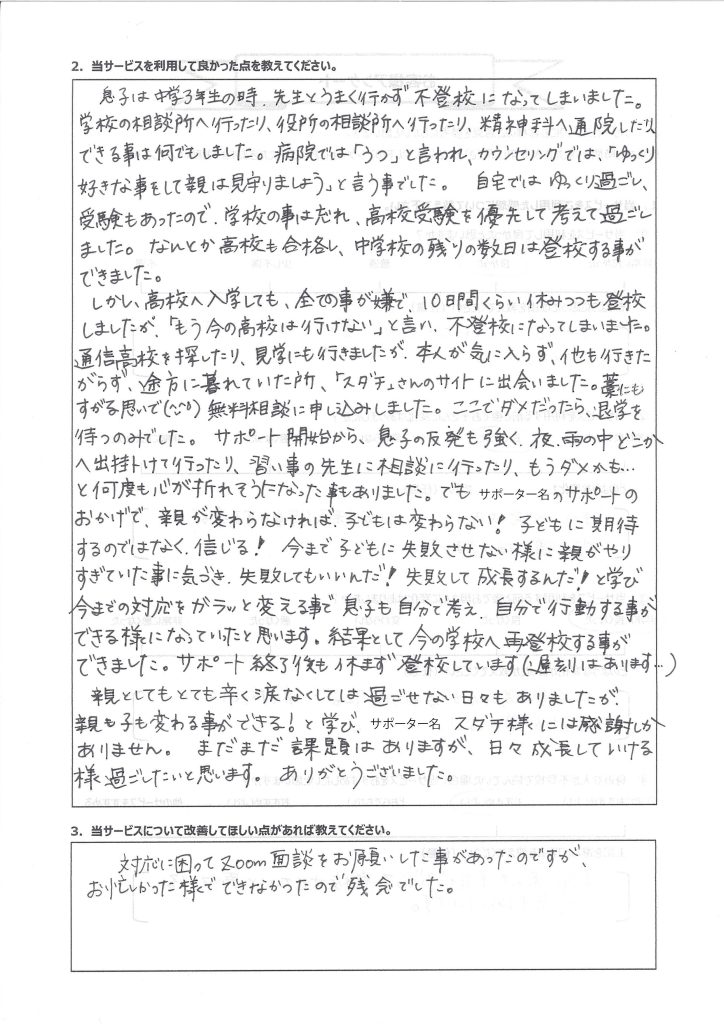 2. 当サービスを利用して良かった点を教えてください。
息子は中学3年生の時、先生とうまく行かず不登校になってしまいました。
学校の相談所へ行ったり、役所の相談所へ行ったり、精神科へ通院したり、
できる事は何でもしました。病院では「うつ」と言われ、カウンセリングでは、「ゆっくり
好きな事をして親は見守りましょう」と言う事でした。 自宅ではゆっくり過ごし、
受験もあったので、学校の事はだれ、高校受験を優先して考えて過ごし
ました。なんとか高校も合格し、中学校の残りの数日は登校する事が
できました。
しかし、高校へ入学しても、全ての事が嫌で、10日間くらい休みつつも登校
しましたが、「もう今の高校は行けない」と言い、不登校になってしまいました。
通信高校を探したり、見学にも行きましたが、本人が気に入らず、他も行きた
がらず、途方に暮れていた所、「スダチ」さんのサイトに出会いました。藁にも
すがる思いで(;;) 無料相談に申し込みしました。ここでダメだったら、退学を
待つのみでした。 サポート開始から、息子の反発も強く、夜、雨の中どこか
へ出掛けて行ったり、習い事の先生に相談に行ったり、もうダメかも…
と何度も心が折れそうになった事もありました。でも サポーター名のサポートの
おかげで、親が変わらなければ、子どもは変わらない! 子どもに期待
するのではなく、信じる! 今まで子どもに失敗させない様に親がやり
すぎていた事に気づき、失敗してもいいんだ! 失敗して成長するんだ!と学び
今までの対応をガラッと変える事で息子も自分で考え、自分で行動する事が
できる様になっていたと思います。結果として今の学校へ再登校する事が
できました。サポート終了後も休まず登校しています(遅刻はあります…)
親としてもとても辛く涙なくしては過ごせない日々もありましたが、
親も子も変わる事ができる!と学び、サポーター名 スダチ様には感謝しか
ありません。 まだまだ課題はありますが、日々成長していける
様に過ごしたいと思います。 ありがとうございました。
3. 当サービスについて改善してほしい点があれば教えてください。
対応に困ってZoom面談をお願いした事があったのですが、
お忙しかった様でできなかったので残念でした。